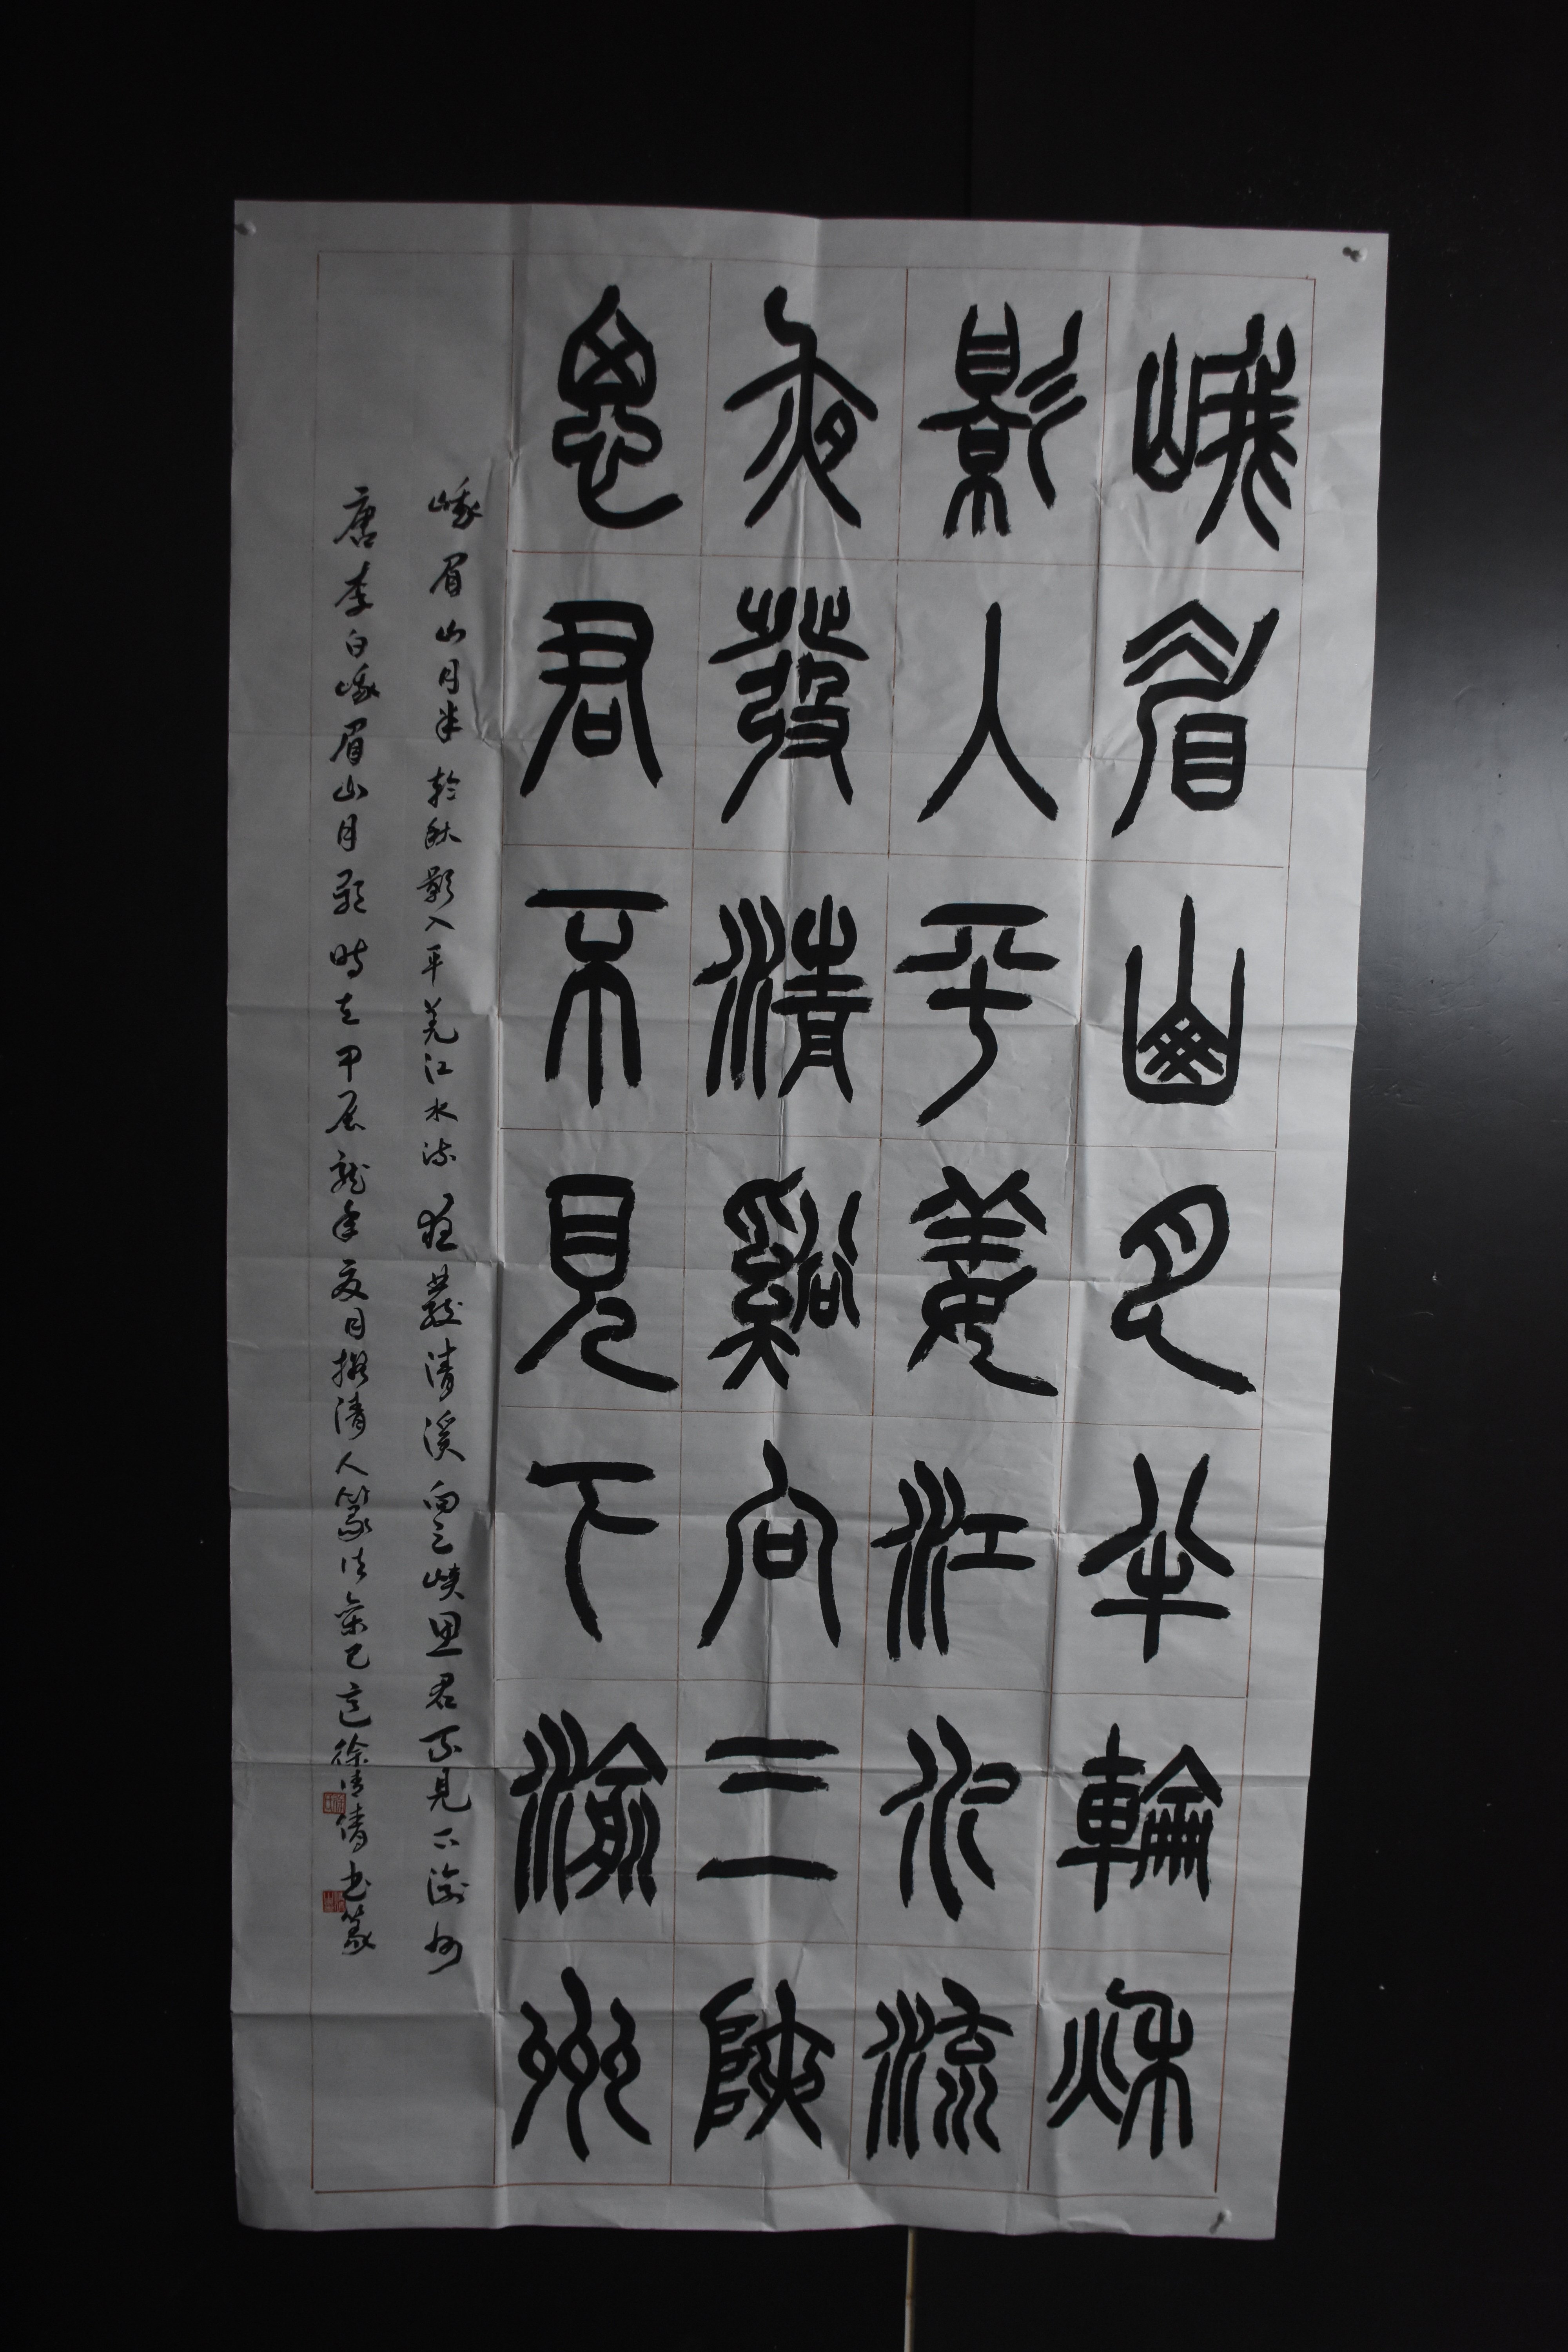 峨眉山月半輪秋
影人平羌江水流
夜發清谿向三陝
思君不見下渝州
峨眉山月半輪秋影入平羌江水流夜發清溪向三峽思君不見下渝州
唐李白峨眉山月歌時在甲辰龍年夏月擬清人篆法徐清書篆